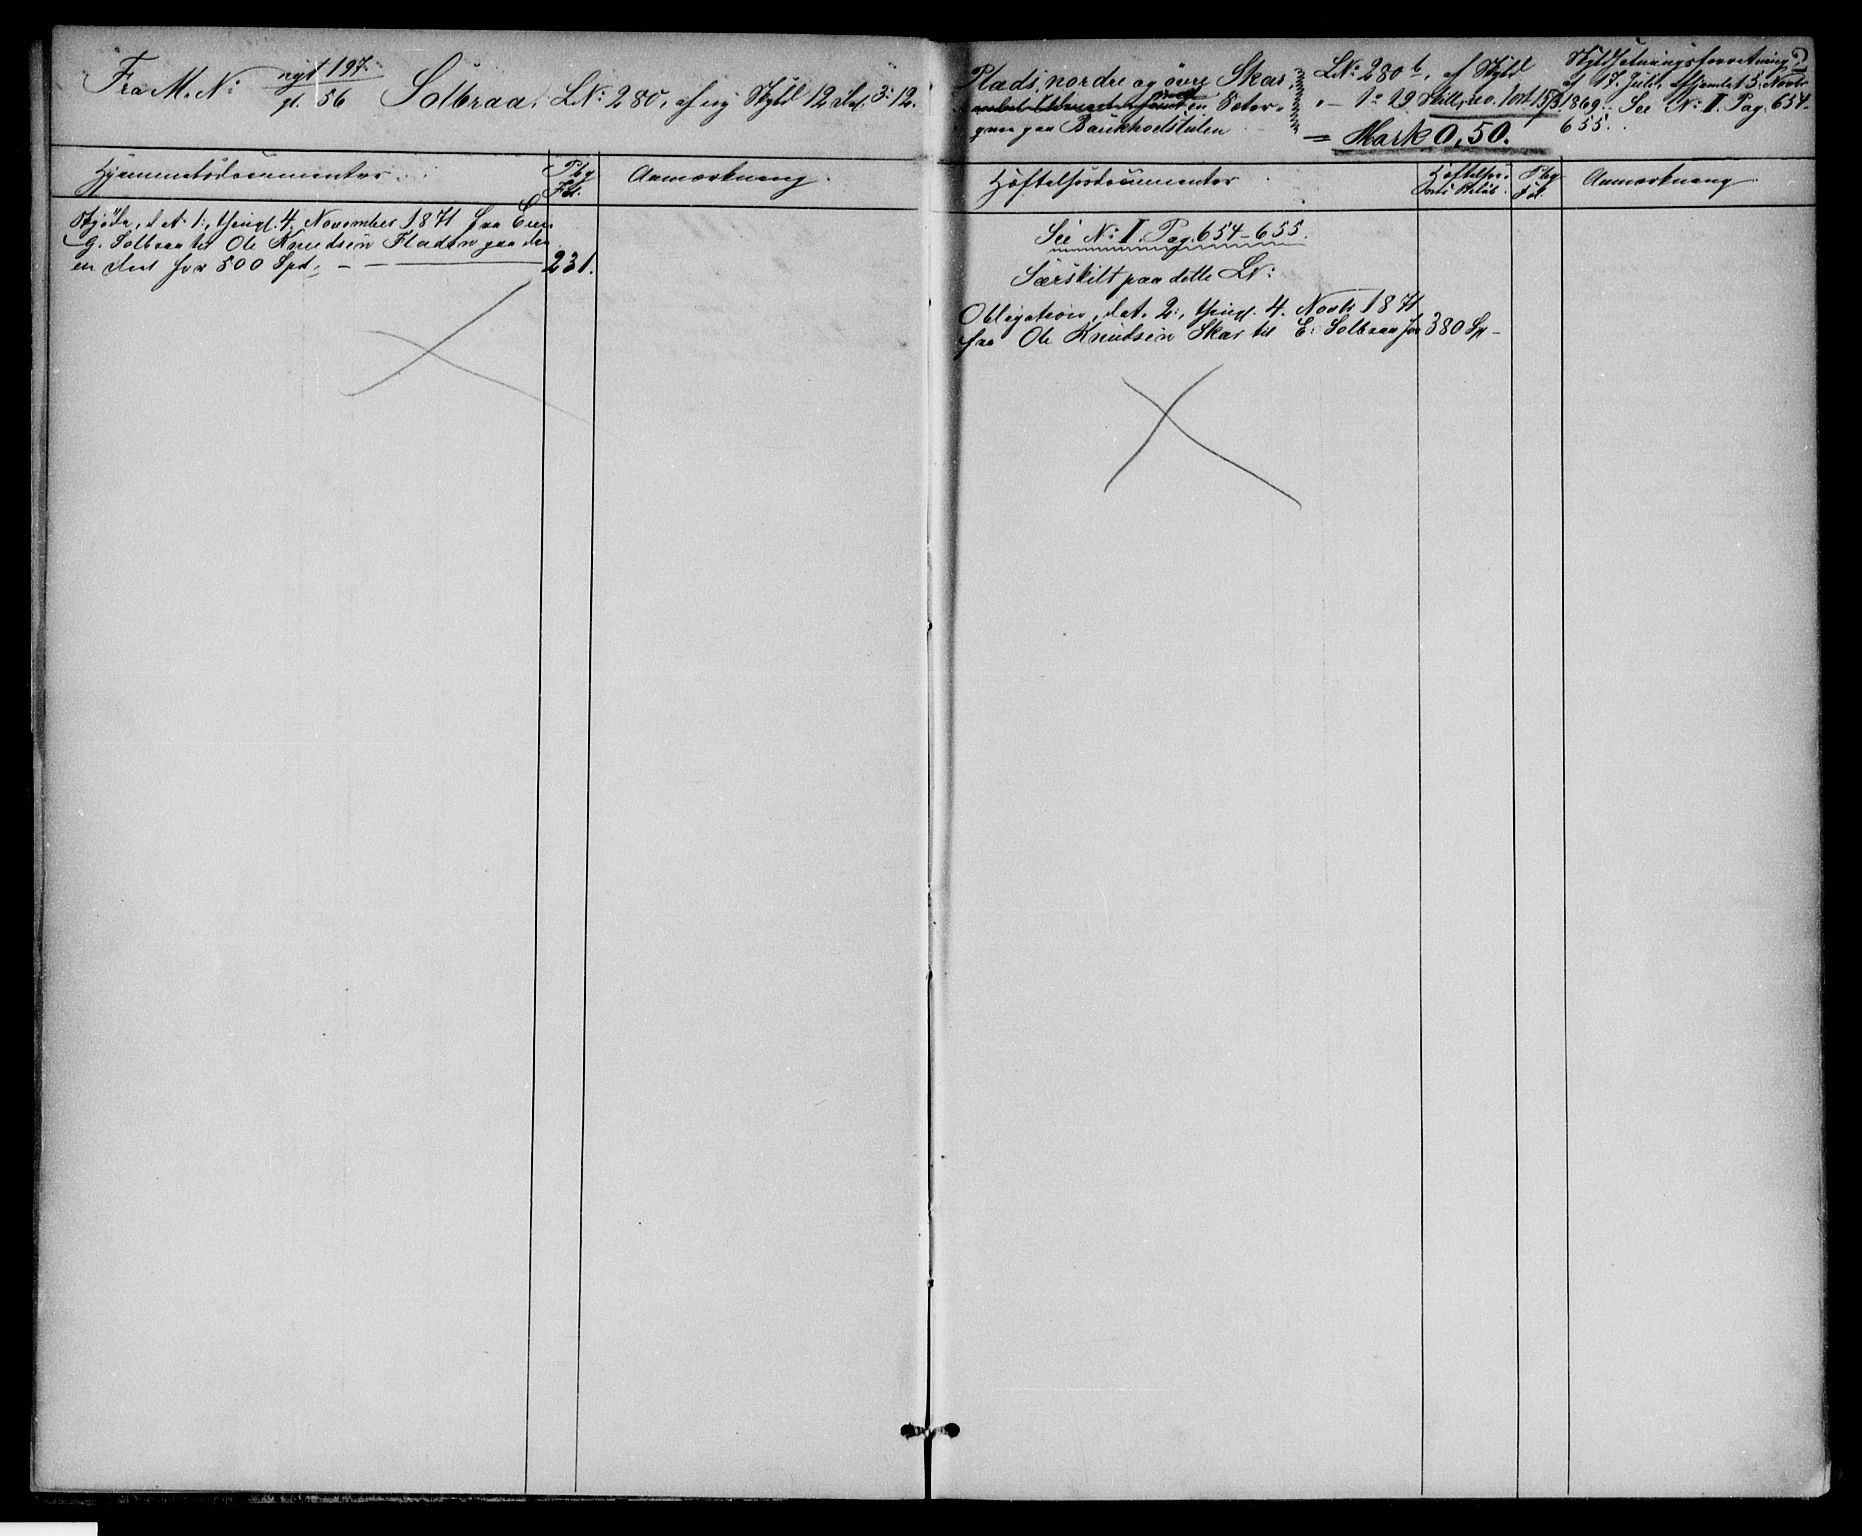 Fra M. No: nyt 197.
gl. 56 Solbraa, LNo: 280, af ny Skyld 12 3: 12.
Hjemmelsdocumenter
Pbg
Fol.
Anmærkning.
Skjöde, dat. 1, thingl. 4. November 1871 fra
G. Solbraa til Ole Knudsen Fladen paa den
en deel for 500 Spd. —
231.
2
Plads, nordre og övre Skar,
en Seter-
paa Baukhoelstulen
LNo: 280 b, af Skyld
"— 1 - 19 Skill,
= Mark 0,50.
Skyldsetningsforretning
af 17. Juli, thinglæst 5. Novbr
1869. See No: II. Pag. 654-
655.
Hæftelsesdocumenter
Hæftelser-
Pbg
Fol.
Anmærkning
See No: II. Pag. 654-655.
Særskilt paa dette LN:
Obligation, dat. 2, thingl. 4. Novbr 1871
fra Ole Knudsen Skar til E. Solbraa for 380 Sp -